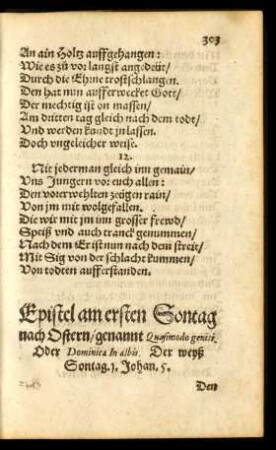 303
An ain Holtz auffgehangen:
Wie es zů vor langst angedeüt/
Durch die Ehrne trostschlangen.
Den hat nun aufferwecket Gott/
Der mechtig ist on massen/
Am dritten tag gleich nach dem todt/
Vnd werden kundt zulassen.
Doch vngeleicher weise.
12.
Nit jederman gleich inn gemain/
Vns Jungern vor euch allen:
Den vorerwehlten zeügen rain/
Von jm mit wolgefallen.
Die wir mit jm inn grosser frewd/
Speiß vnd auch tranck genummen/
Nach dem Er ist nun nach dem streit/
Mit Sig von der schlacht kummen/
Von todten aufferstanden.
Epistel am ersten Sontag
nach Ostern/genannt Quasimodo geniti.
Oder Dominica In albis. Der weyß
Sontag. 1. Johan. 5.
Den